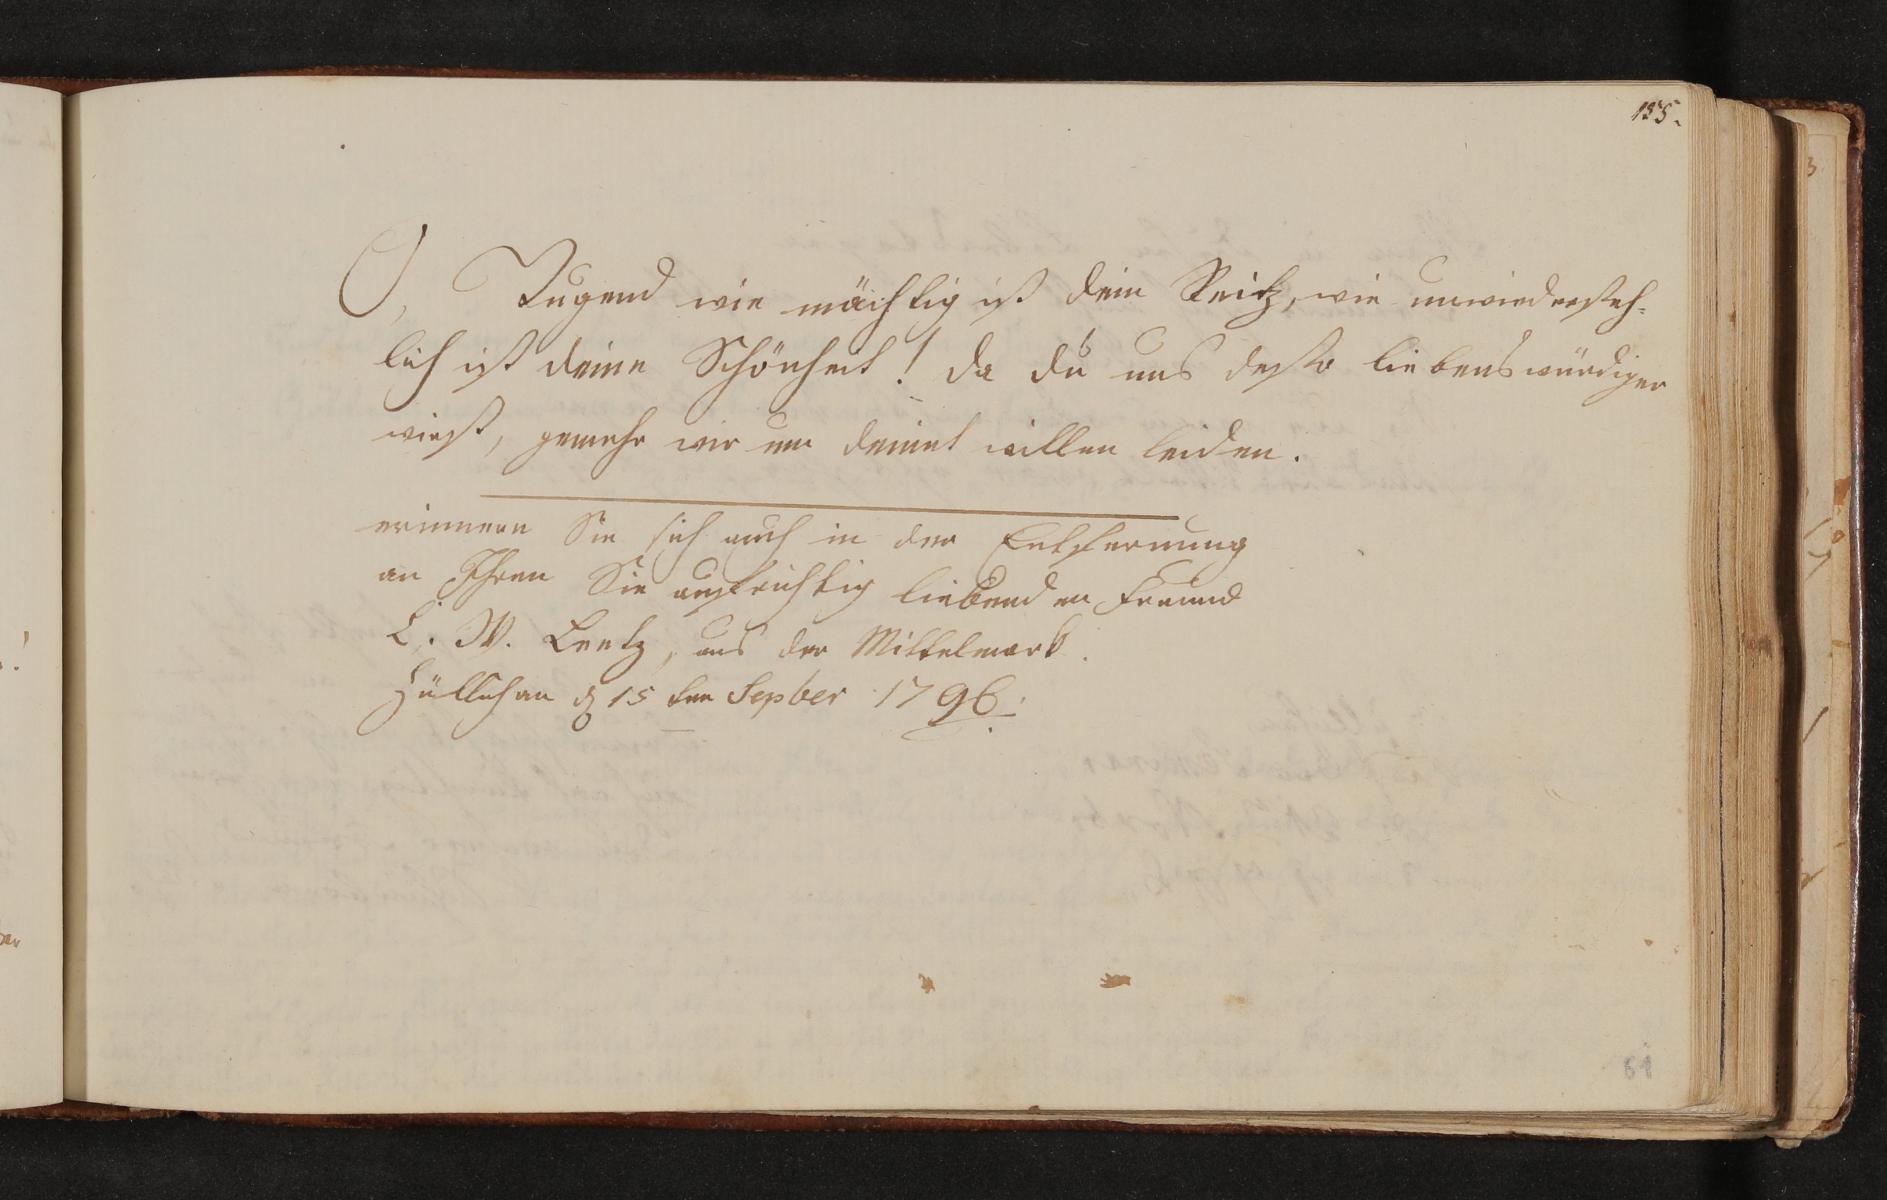 155.
O, Tugend wie mächtig ist dein Reitz, wie unwiedersteh-
lich ist deine Schönheit! da du uns desto liebenswürdiger
wirst, jemehr wir um deinet willen leiden.
erinnern Sie sich auch in der Entfernung
an Ihren Sie aufrichtig liebenden Freund
L. W. Lentz, aus der Mittelmark.
Züllichau d 15 ten Septber 1796.
61